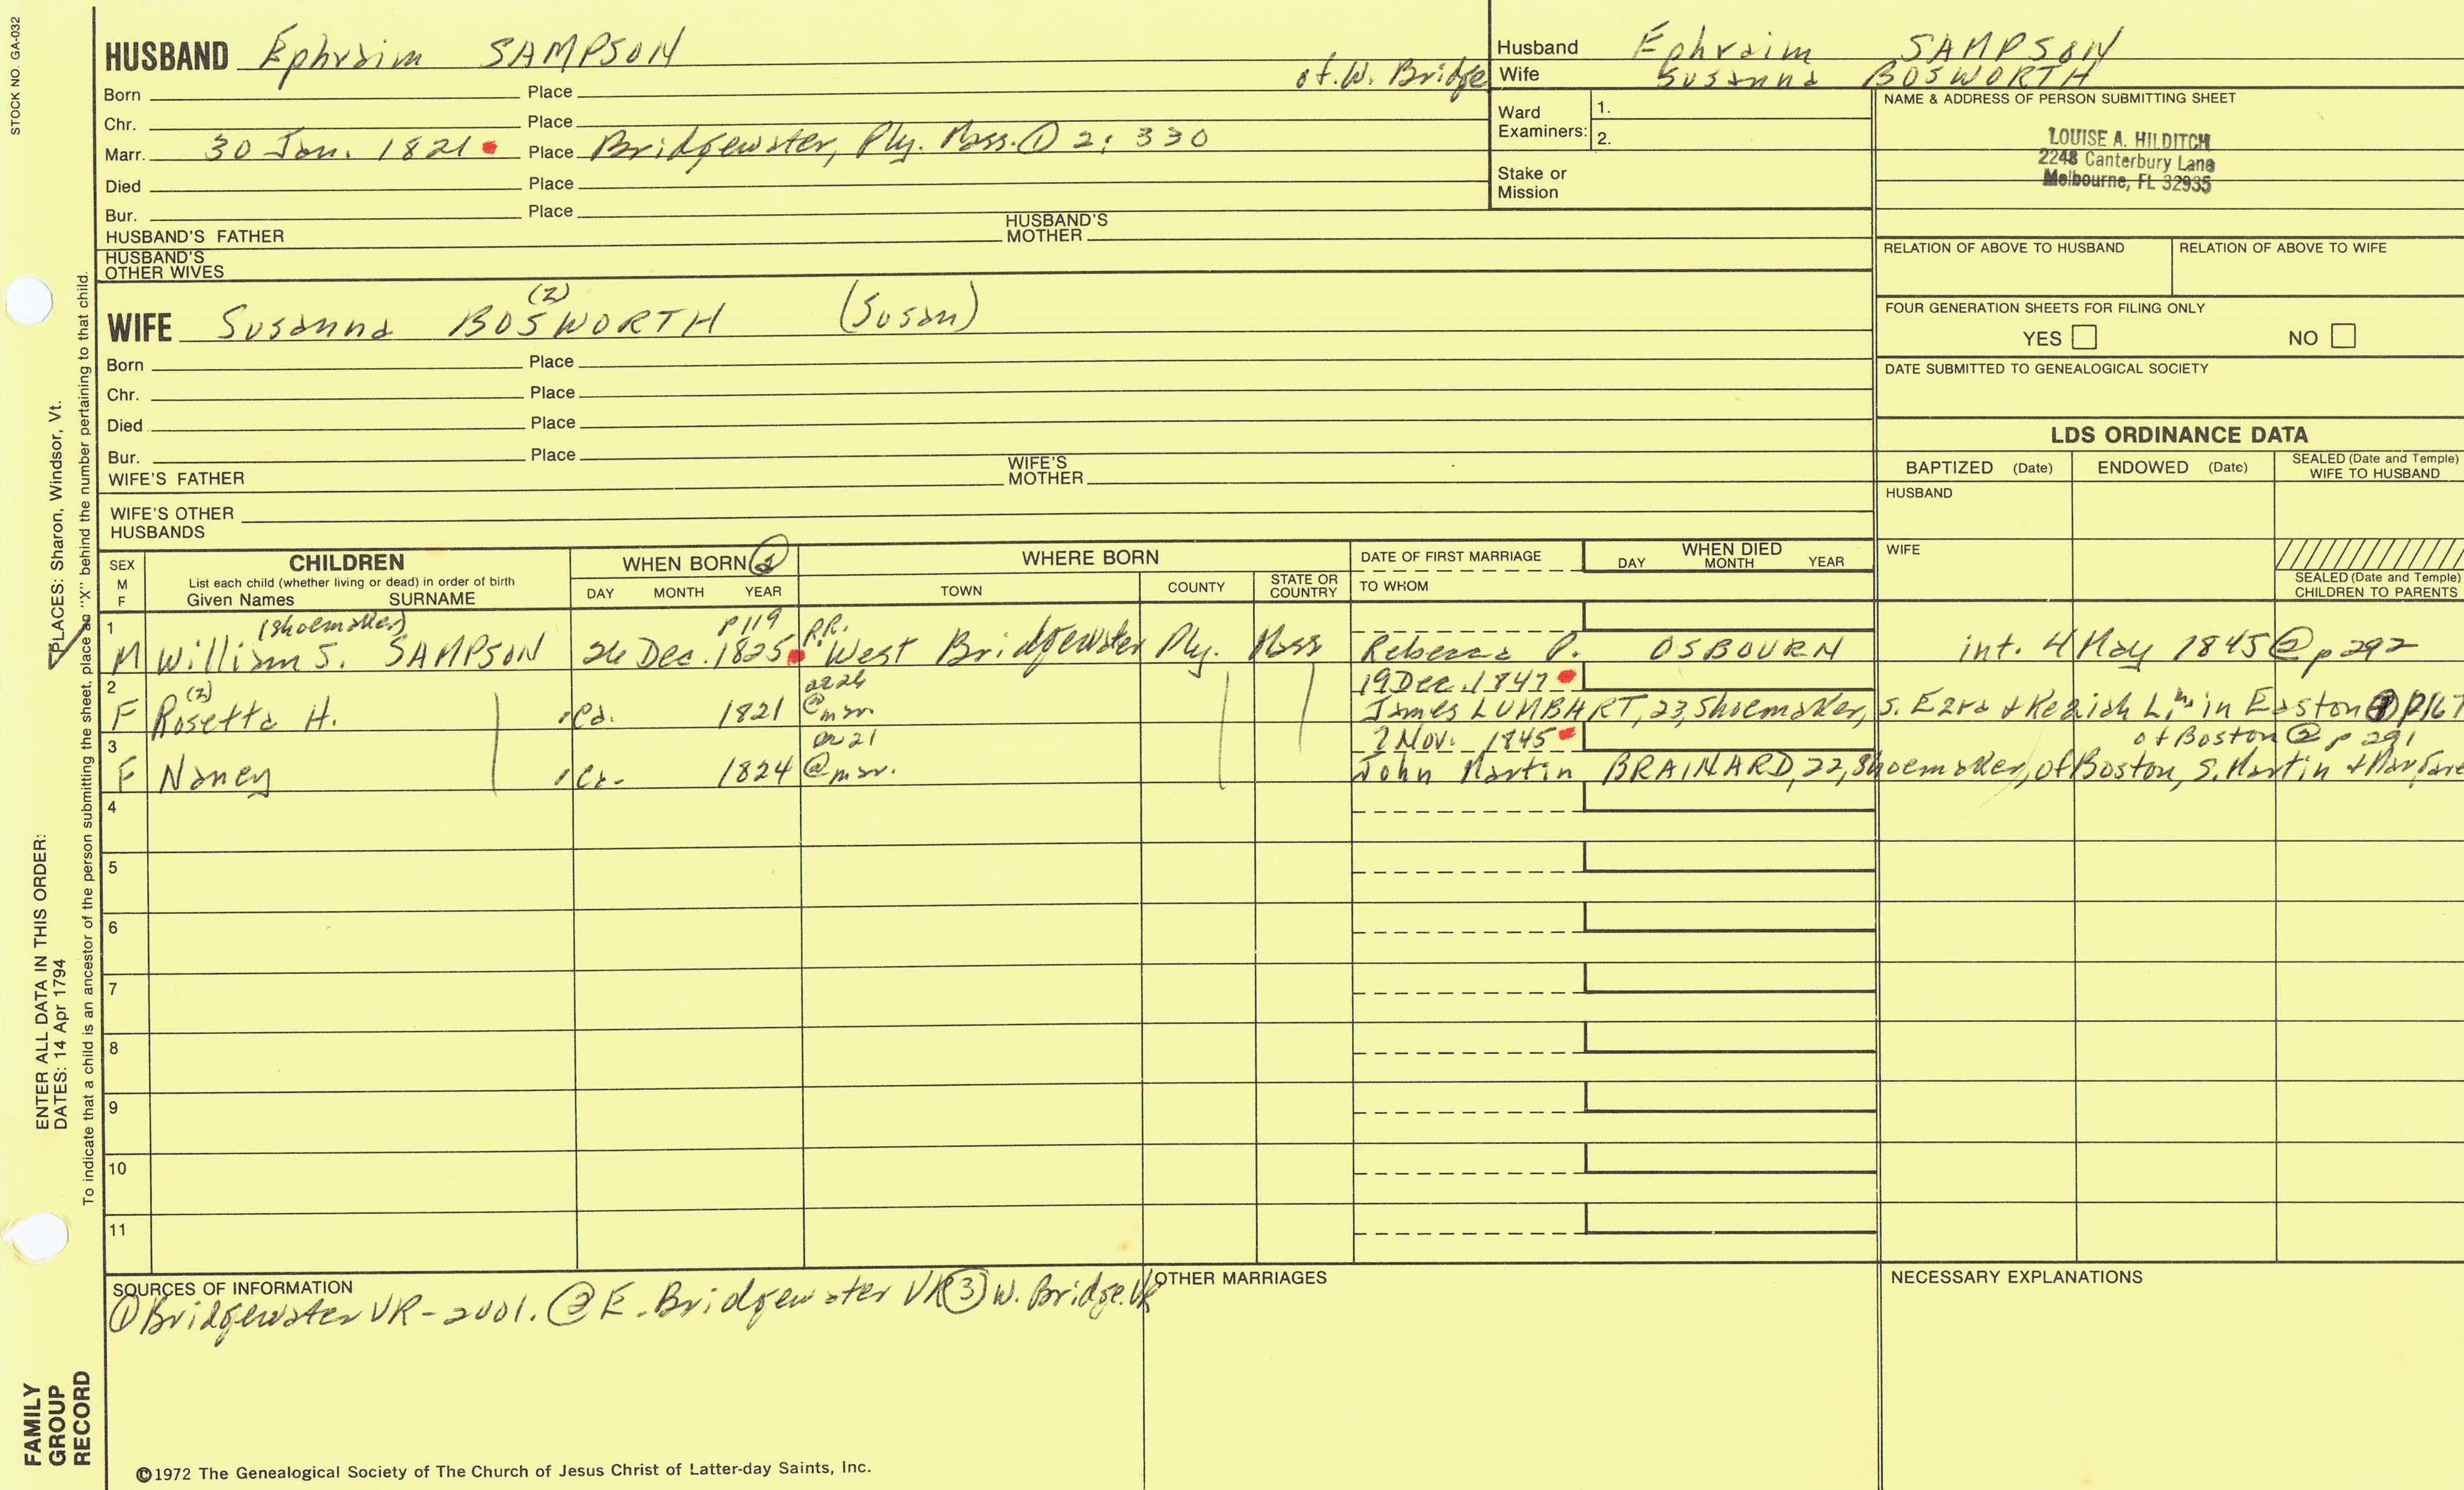 STOCK NO. GA-032
HUSBAND Ephraim SAMPSON
of W. Bridge
Born Place
Chr. Place
Marr. 30 Jan. 1821 Place Bridgewater, Ply. Mass. ① 2: 330
Died Place
Bur. Place
HUSBAND'S FATHER HUSBAND'S MOTHER
HUSBAND'S OTHER WIVES
Husband Ephraim SAMPSON
Wife Susanna BOSWORTH
Ward Examiners: 1.
2.
Stake or Mission
NAME & ADDRESS OF PERSON SUBMITTING SHEET
LOUISE A. HILDITCH
2248 Canterbury Lane
Melbourne, FL 32935
RELATION OF ABOVE TO HUSBAND RELATION OF ABOVE TO WIFE
FOUR GENERATION SHEETS FOR FILING ONLY
YES NO
DATE SUBMITTED TO GENEALOGICAL SOCIETY
(2)
WIFE Susanna BOSWORTH (Susan)
Born Place
Chr. Place
Died Place
Bur. Place
WIFE'S FATHER WIFE'S MOTHER
WIFE'S OTHER HUSBANDS
LDS ORDINANCE DATA
BAPTIZED (Date) ENDOWED (Date) SEALED (Date and Temple) WIFE TO HUSBAND
HUSBAND
WIFE
SEALED (Date and Temple) CHILDREN TO PARENTS
SEX M F
CHILDREN
List each child (whether living or dead) in order of birth
Given Names SURNAME
WHEN BORN ②
DAY MONTH YEAR
WHERE BORN
TOWN COUNTY STATE OR COUNTRY
DATE OF FIRST MARRIAGE
TO WHOM
WHEN DIED
DAY MONTH YEAR
1 (shoemaker) p119 P.R.
M William S. SAMPSON 26 Dec. 1825 West Bridgewater Ply. Mass Rebecca P. OSBOURN int. 4 May 1845 ② p 292
2 (2) 19 Dec. 1847
F Rosetta H. Ca. 1821 @ mar. James LUMBART, 23, Shoemaker, s. Ezra & Keziah L. in Easton p167
3 7 Nov. 1845 of Boston ② p 291
F Nancy Ca. 1824 @ mar. John Martin BRAINARD, 22, Shoemaker, of Boston, s. Martin &
4
5
6
7
8
9
10
11
SOURCES OF INFORMATION
① Bridgewater VR - 2 vol. ② E. Bridgewater VR ③ W. Bridge. VR
OTHER MARRIAGES
NECESSARY EXPLANATIONS
©1972 The Genealogical Society of The Church of Jesus Christ of Latter-day Saints, Inc.
PLACES: Sharon, Windsor, Vt.
To indicate that a child is an ancestor of the person submitting the sheet, place an "X" behind the number pertaining to that child.
ENTER ALL DATA IN THIS ORDER:
DATES: 14 Apr 1794
FAMILY GROUP RECORD